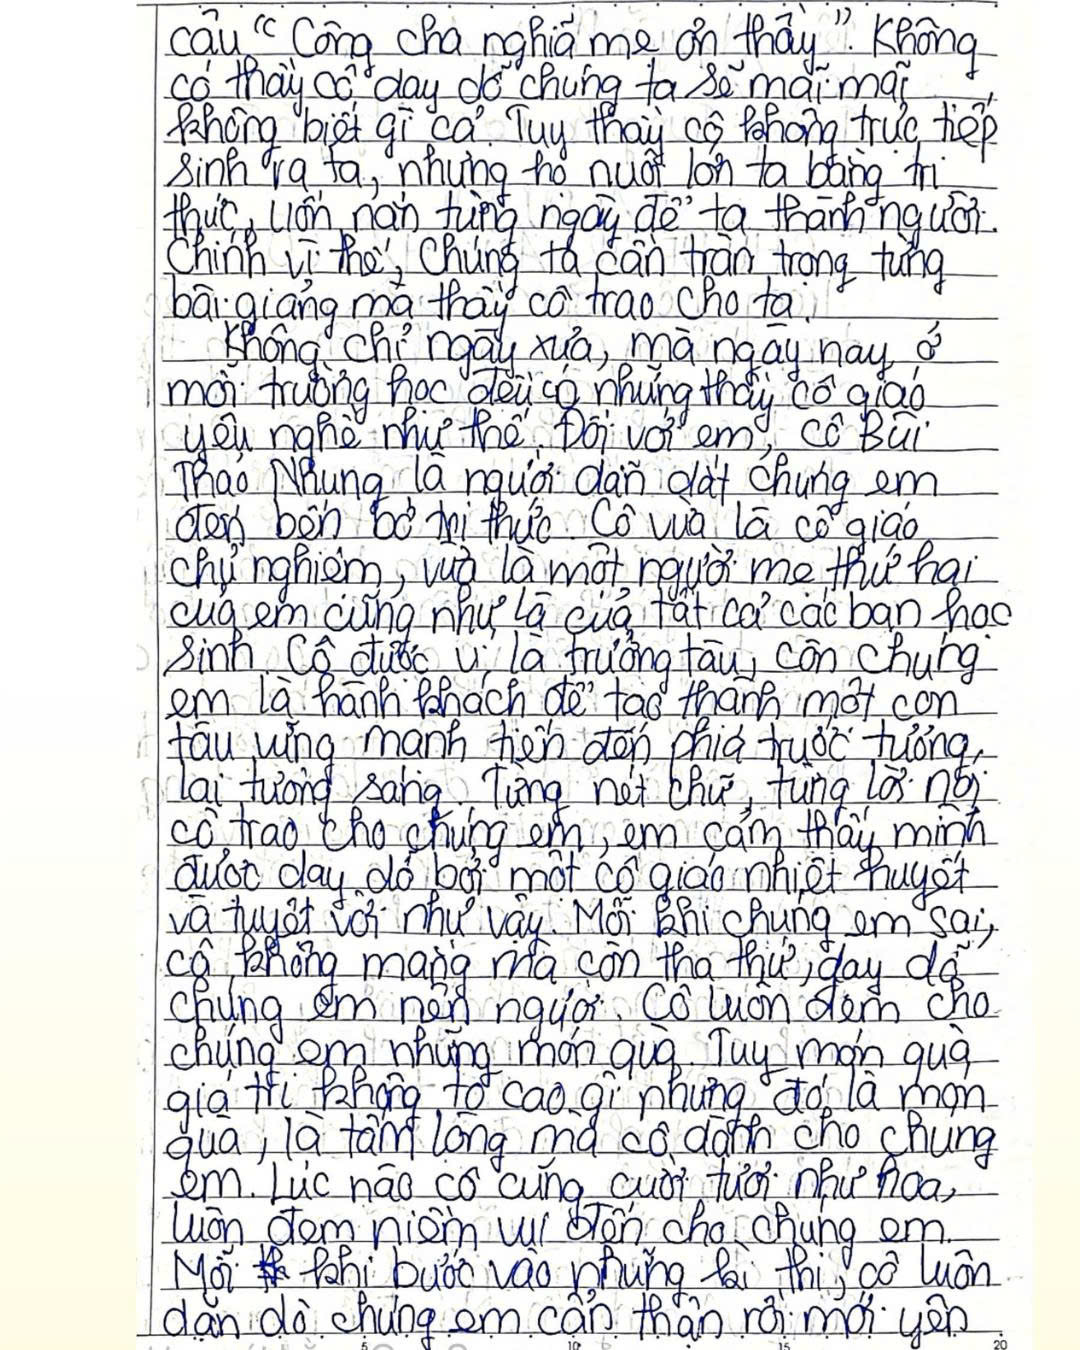 câu "Công cha nghĩa mẹ ơn thầy". Không
có thầy cô dạy dỗ chúng ta sẽ mãi mãi
không biết gì cả. Tuy thầy cô không trực tiếp
sinh ra ta, nhưng họ nuôi lớn ta bằng tri
thức, uốn nắn từng ngày để ta thành người.
Chính vì thế, chúng ta cần trân trọng từng
bài giảng mà thầy cô trao cho ta.
Không chỉ ngày xưa, mà ngày nay ở
mỗi trường học đều có những thầy cô giáo
yêu nghề như thế. Đối với em, cô Bùi
Thảo Nhung là người dẫn dắt chúng em
đến bến bờ tri thức. Cô vừa là cô giáo
chủ nghiệm, vừa là một người mẹ thứ hai
của em cũng như là của tất cả các bạn học
sinh. Cô được ví là trưởng tàu, còn chúng
em là hành khách để tạo thành một con
tàu vững mạnh tiến đến phía trước tương
lai tương sáng. Từng nét chữ, từng lời nói
cô trao cho chúng em, em cảm thấy mình
được dạy dỗ bởi một cô giáo nhiệt huyết
và tuyệt vời như vậy. Mỗi khi chúng em sai,
cô không mắng mà còn tha thứ, dạy dỗ
chúng em nên người. Cô luôn đem cho
chúng em những món quà. Tuy món quà
giá trị không to cao gì nhưng đó là món
quà, là tấm lòng mà cô dành cho chúng
em. Lúc nào cô cũng cười tươi như hoa,
luôn đem niềm vui đến cho chúng em.
Mỗi khi bước vào những kì thi, cô luôn
dặn dò chúng em cẩn thận rồi mới yên
5 10 15 20